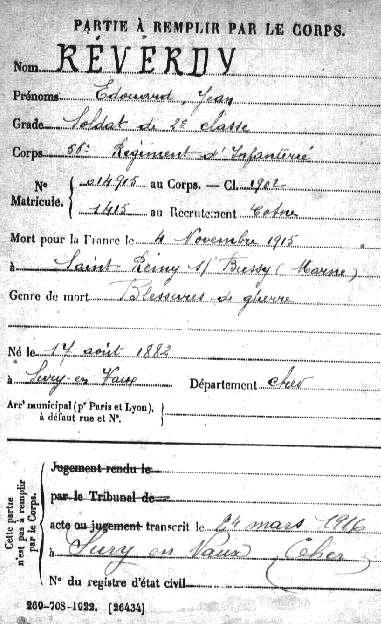 PARTIE À REMPLIR PAR LE CORPS.
Nom REVERDY
Prénoms Edouard, Jean
Grade Soldat de 2e classe
Corps 56e Regiment d'Infanterie
N° Matricule.
014915 au Corps. — Cl. 1902
1415 au Recrutement
Mort pour la France le 4 Novembre 1915
à Saint Rémy s/ Bussy (Marne)
Genre de mort Blessures de guerre
Né le 17 août 1882
à Sury en Vaux Département Cher
Arrt municipal (pr Paris et Lyon),
à défaut rue et N°.
Cette partie n'est pas à remplir par le Corps.
Jugement rendu le
par le Tribunal de
acte ou jugement transcrit le 24 mars 1916
à Sury en Vaux (Cher)
N° du registre d'état civil
269-708-1922. [26434]